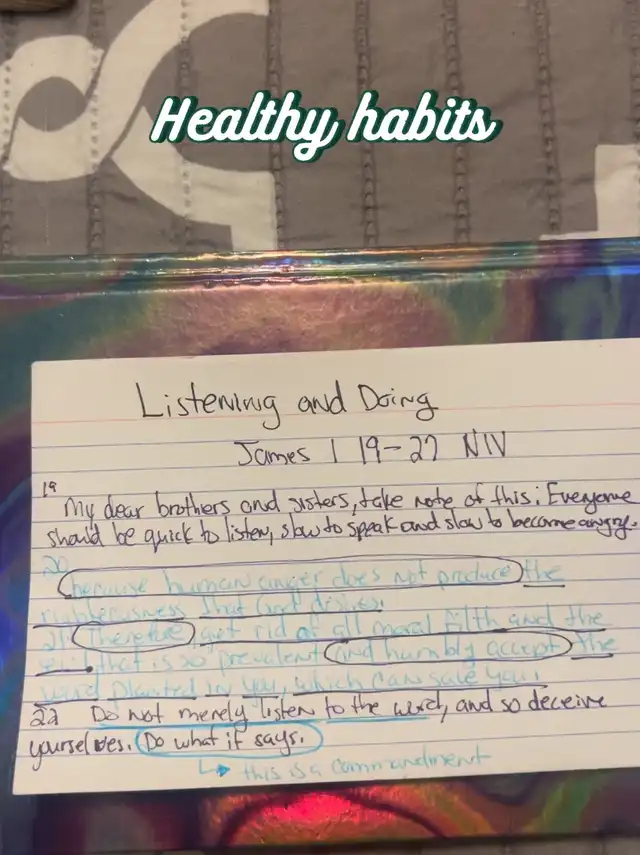 Healthy habits
Listening and Doing
James 1 19-27 NIV
19 My dear brothers and sisters, take note of this: Everyone
should be quick to listen, slow to speak and slow to become angry.
20 because human anger does not produce the
righteousness that God desires.
21 Therefore, get rid of all moral filth and the
evil that is so prevalent and humbly accept the
word planted in you, which can save you.
22 Do not merely listen to the word, and so deceive
yourselves. Do what it says.
↳ this is a commandment